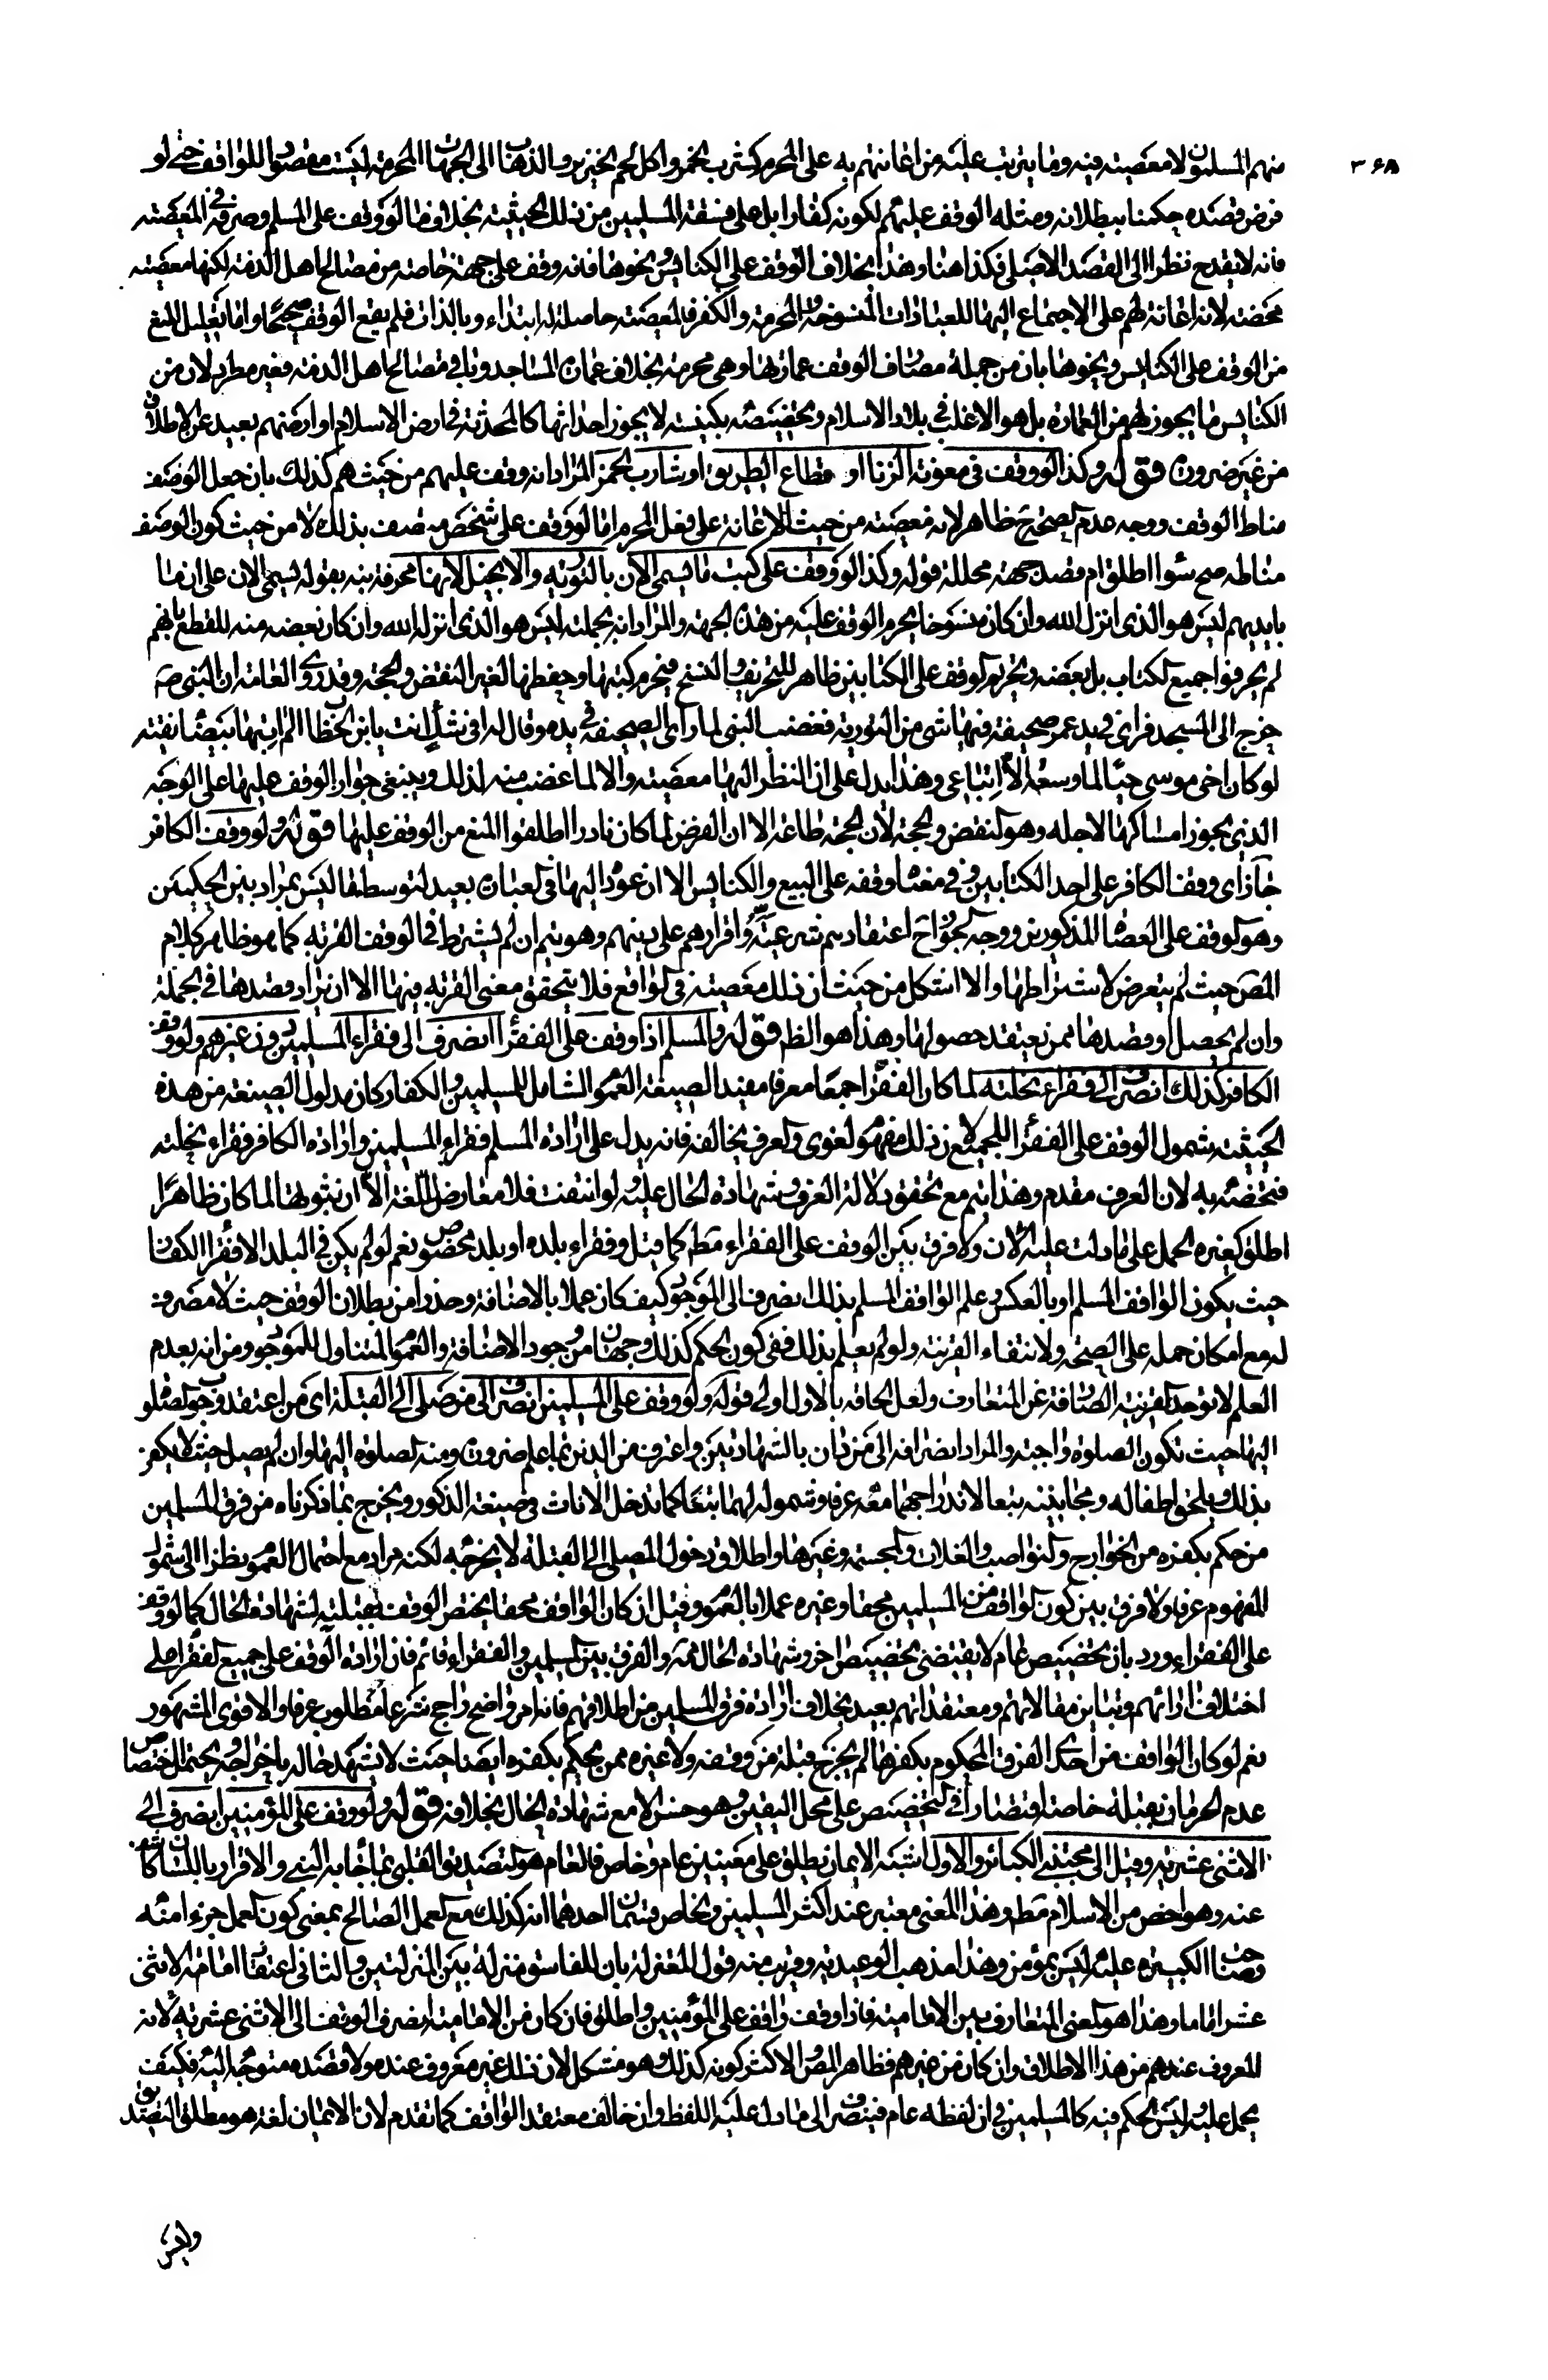 ٣۶٨
منهم المسلمون لا معصية فيه وما يترتب عليه من اعانتهم به على المحرم كشرب الخمر واكل لحم الخنزير والذهاب الى الجهات المحرمة ليست مقصودا للواقف حتى لو
فرض قصده حكمنا ببطلانه ومثله الوقف عليهم لكونه كفارا بل على فسقة المسلمين من تلك الحيثية بخلاف ما لو وقف على المسلم وصرفه في المعصية
فانه لا يقدح نظرا الى القصد الاصلى فكذا هنا وهذا بخلاف الوقف على الكنايس ونحوها فانه وقف على جهة خاصة من مصالح اهل الذمة لكنها معصية
محضة لانه اعانة لهم على الاجتماع اليها للعبادات المنسوخة والمحرمة والكفر فالمعصية حاصلة له ابتداء وبالذات فلم يقع الوقف صحيحا واما تعليل المنع
من الوقف على الكنايس ونحوها بان من جملة مصارف الوقف عمارتها وهى محرمة بخلاف عمارة المساجد وباقى مصالح اهل الذمة فغير مطرد لان من
الكنايس ما يجوز لهم من العمارة بل هو الاغلب في بلاد الاسلام وتخصيصه بكنيسة لا يجوز احداثها كالمحدثة في ارض الاسلام او ارضهم بعيد عن الاطلاق
من غير ضرورة قوله وكذا لو وقف في معونة الزناة او قطاع الطريق او شارب الخمر المراد انه وقف عليهم من حيث هم كذلك بان جعل الوصف
مناط الوقف ووجه عدم الصحة ح ظاهر لانه معصية من حيث الاعانة على فعل المحرم اما لو وقف على شخص متصف بذلك لا من حيث كون الوصف
مناطه صح سواء اطلق ام قصد جهة محللة قوله وكذا لو وقف على كتب ما يسمى الان بالتورية والانجيل لانها محرفة نبه بقوله يسمى الان على ان ما
بايديهم ليس هو الذى انزل الله وان كان منسوخا يحرم الوقف عليه من هذه الجهة والمراد انه بجملته ليس هو الذى انزله الله وان كان بعضه منه للقطع بانهم
لم يحرفوا جميع الكتاب بل بعضه وتحريم الوقف على الكتابين ظاهر للتحريف والنسخ فيحرم كتبها وحفظها لغير النقض والحجة وقد روى العامة ان النبى ص
خرج الى المسجد فراى في يد عمر صحيفة فيها شى من التورية فغضب النبى لما راى الصحيفة في يده وقال له افى شك انت يابن الخطاب الم ات بها بيضاء نقية
لو كان اخى موسى حيا لما وسعه الا اتباعى وهذا يدل على ان النظر اليها معصية والا لما غضب منه لذلك وينبغى جواز الوقف عليها على الوجه
الذى يجوز امساكها لاجله وهو النقض والحجة لان الحجة طاعة الا ان الفرض لما كان نادرا اطلقوا المنع من الوقف عليها قوله ولو وقف الكافر
جاز اى وقف الكافر على احد الكتابين وفى معناه وقفه على البيع والكنايس الا ان عود اليها في العبارة بعيد لتوسط ما ليس بمراد بين الحكمين
وهو الوقف على العصاة المذكورين ووجه الجواز ح اعتقادهم شرعيته واقرارهم على دينهم وهو يتم ان لم يشترط في الوقف القربة كما هو ظاهر كلام
المص حيث لم يتعرض لاشتراطها والا اشكل من حيث ان ذلك معصية في الواقع فلا يتحقق معنى القربة فيها الا ان يراد قصدها في الجملة
وان لم يحصل او قصدها ممن يعتقد حصولها وهذا هو الظ قوله والمسلم اذا وقف على الفقراء انصرف الى فقراء المسلمين دون غيرهم ولو وقف
الكافر كذلك انصرف الى فقراء نحلته لما كان الفقراء جمعا معرفا مفيدا لصيغة العموم الشامل للمسلمين والكفار كان مدلول الصيغة من هذه
الحيثية شمول الوقف على الفقراء للجميع لان ذلك مفهوم لغوى والعرف يخالفه فانه يدل على ارادة المسلم فقراء المسلمين وارادة الكافر فقراء نحلته
فتخصه به لان العرف مقدم وهذا يتم مع تحقق دلالة العرف وشهادة الحال عليه ولو انتفت فلا معارض للغة الا ان ثبوتها لما كان ظاهرا
اطلق كغيره الحمل على ما دلت عليه الان ولا فرق بين الوقف على الفقراء مط كما قيل وفقراء بلده او بلد مخصوص نعم لو لم يكن في البلد الا فقراء الكفار
حيث يكون الواقف المسلم او بالعكس وعلم الواقف المسلم بذلك انصرف الى الموجود كيف كان عملا بالاضافة وحذرا من بطلان الوقف حيث لا مصرف
له مع امكان حمله على الصحة ولانتفاء القرينة ولو لم يعلم بذلك ففى كون الحكم كذلك وجهان من وجود الاضافة والعموم المتناول للموجود ومن انه بعدم
العلم لا توجد القرينة الصارفة عن المتعارف ولعل الحاقه بالاول اولى قوله ولو وقف على المسلمين انصرف الى من صلى الى القبلة اى من اعتقد وجوب الصلوة
اليها حيث تكون الصلوة واجبة والمراد انصرافه الى من دان بالشهادتين واعترف من الدين بما علم ضرورة ومنه الصلوة اليها وان لم يصل حيث لا يكفر
بذلك ويلحق اطفاله ومجانينه تبعا لاندراجهما معه عرفا وشموله لهما تبعا كما تدخل الاناث في صيغة الذكور ويخرج بما ذكرناه من فرق المسلمين
من حكم بكفره من الخوارج والنواصب والغلات والمجسمة وغيرها واطلاق دخول المصلى الى القبلة لا يخرجه لكنه مراد مع احتمال العموم نظرا الى شمول
المفهوم عرفا ولا فرق بين كون الواقف من المسلمين محقا وغيره عملا بالعموم وقيل ان كان الواقف محقا يختص الوقف بقبيله لشهادة الحال كما لو وقف
على الفقراء ورد بان تخصيص عام لا يقتضى تخصيص اخر وشهادة الحال ممنوعة والفرق بين المسلمين والفقراء قائم فان ارادة الوقف على جميع الفقراء على
اختلاف ارائهم وتباين مقالاتهم ومعتقداتهم بعيد بخلاف ارادة فرق المسلمين من اطلاقهم فانه امر واضح راجح شرعا مطلوب عرفا والاقوى المشهور
نعم لو كان الواقف من احدى الفرق المحكوم بكفرها لم يخرج قبيله من وقفه ولا غيره ممن يحكم بكفره ايضا حيث لا تشهد حاله باخراجه ويحتمل اختصاص
عدم الحرمان بقبيله خاصة اقتصارا في التخصيص على محل اليقين وهو حسن الا مع شهادة الحال بخلافه قوله ولو وقف على المؤمنين انصرف الى
الاثنى عشرية وقيل الى مجتنبى الكبائر والاول اشبه الايمان يطلق على معنيين عام وخاص فالعام هو التصديق القلبى بما جاء به النبى والاقرار باللسان كاشف
عنه وهو اخص من الاسلام مط وهذا المعنى معتبر عند اكثر المسلمين والخاص قسمان احدهما انه كذلك مع العمل الصالح بمعنى كون العمل جزءا منه
وصاحب الكبيرة عليه ليس بمؤمن وهذا مذهب الوعيدية وقريب منه قول المعتزلة بان للفاسق منزلة بين المنزلتين والثانى اعتقاد امامة الاثنى
عشر اماما وهذا هو المعنى المتعارف بين الامامية فاذا وقف واقف على المؤمنين واطلق فان كان من الامامية انصرف الوقف الى الاثنى عشرية لانه
المعروف عندهم من هذا الاطلاق وان كان من غيرهم فظاهر المص والاكثر كونه كذلك وهو مشكل لان ذلك غير معروف عنده ولا قصده متوجها اليه فكيف
يحمل عليه وليس الحكم فيه كالمسلمين في ان لفظه عام فينصرف الى ما دل عليه اللفظ وان خالف معتقد الواقف كما تقدم لان الايمان لغة هو مطلق التصديق